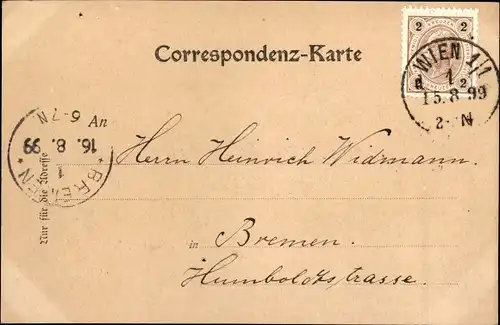 Correspondenz-Karte
2 2
2 2
WIEN 1/1
d 1
15.8.99
2- N
An
Herrn Heinrich Widmann.
in Bremen.
Humboldtstrasse.
Nur für die Adresse
BREMEN
1
16. 8. 99
6-7N